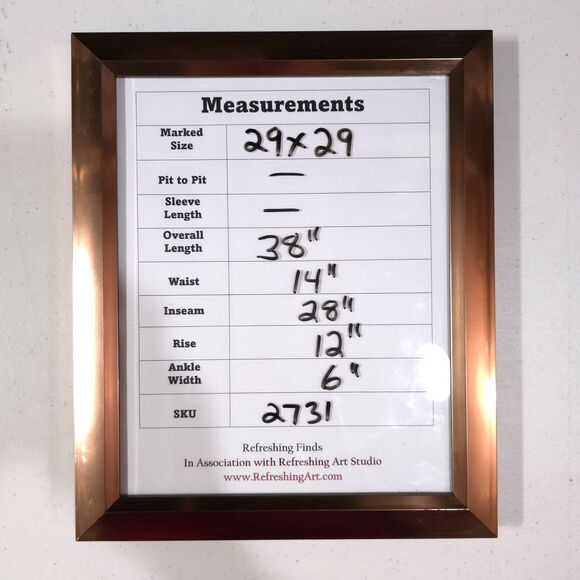 Measurements
Marked
Size
29x29
Pit to Pit
—
Sleeve
Length
—
Overall
Length
38"
Waist
14"
Inseam
28"
Rise
12"
Ankle
Width
6"
SKU
2731
Refreshing Finds
In Association with Refreshing Art Studio
www.RefreshingArt.com